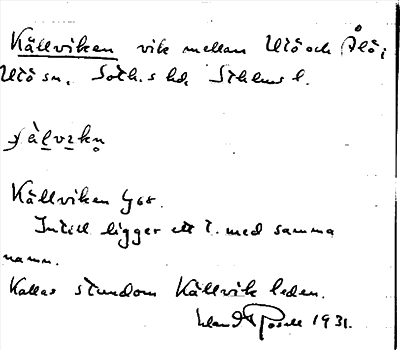 Källviken vik mellan Utö och Ålö i
Utö sn. Soth.s hd. Sthlms l.
Källviken
Intill ligger ett t. med samma
namn.
Kallas stundom Källvik leden.
Rosell 1931.